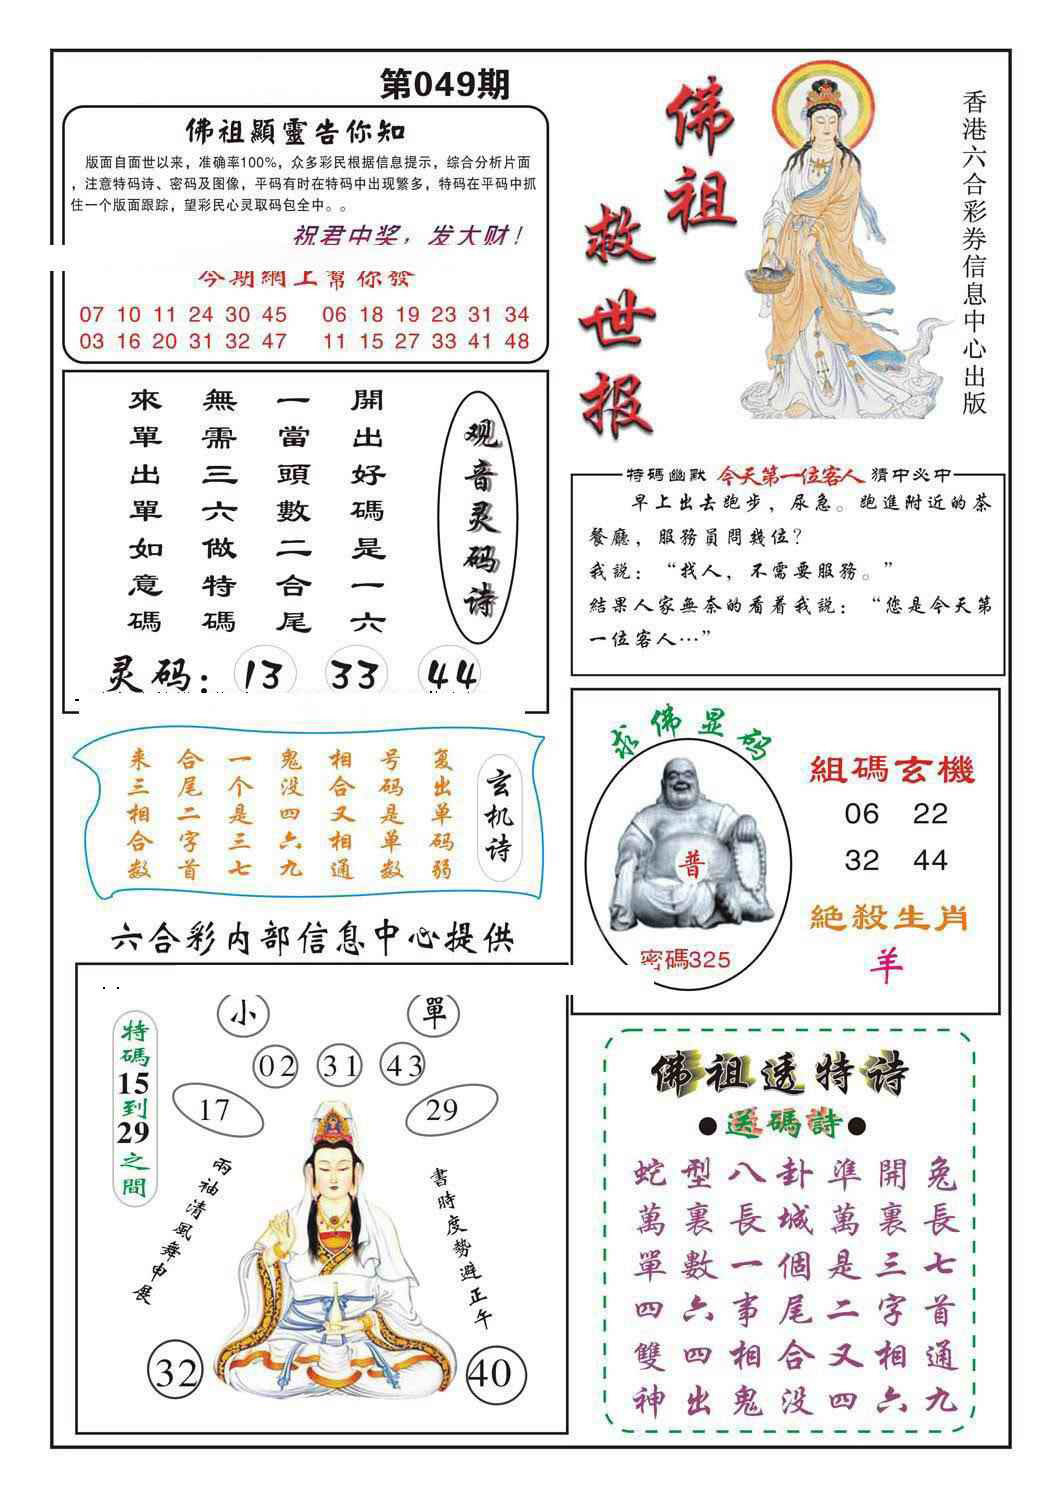 第049期
佛祖顯靈告你知
版面自面世以来，准确率100%，众多彩民根据信息提示，综合分析片面
，注意特码诗、密码及图像，平码有时在特码中出现繁多，特码在平码中抓
住一个版面跟踪，望彩民心灵取码包全中。。
祝君中奖，发大财！
今期網上幫你發
07 10 11 24 30 45 06 18 19 23 31 34
03 16 20 31 32 47 11 15 27 33 41 48
佛祖
救世报
香港六合彩券信息中心出版
观音灵码诗
開出好碼是一六
一當頭數二合尾
無需三六做特碼
來單出單如意碼
灵码：13 33 44
特碼幽默 今天第一位客人 猜中必中
早上出去跑步，尿急。跑進附近的茶
餐廳，服務員問幾位？
我説：“找人，不需要服務。”
結果人家無奈的看着我説：“您是今天第
一位客人…”
玄机诗
复出单码弱
号码是单数
相合又相通
鬼没四六九
一个是三七
合尾二字首
来三相合数
求佛显码
普
密碼325
組碼玄機
06 22
32 44
絶殺生肖
羊
六合彩内部信息中心提供
小 單
02 31 43
17 29
特碼15到29之間
兩袖清風舞中展
書時度勢避正午
32 40
佛祖透特诗
●送碼詩●
蛇型八卦準開兔
萬裏長城萬裏長
單數一個是三七
四六事尾二字首
雙四相合又相通
神出鬼没四六九